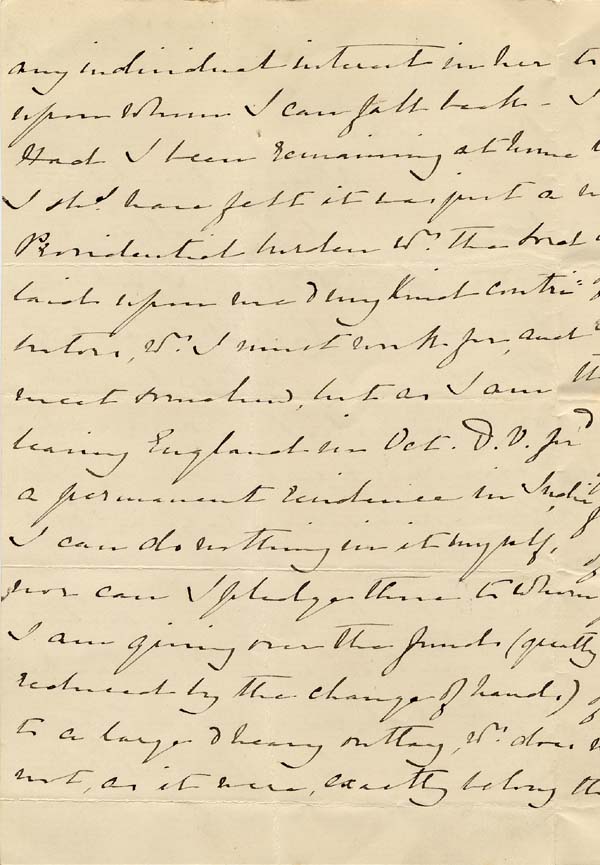 any individual interest in her to
upon whom I can fall back – I
Had I been remaining at home
I shd. have felt it was just a
Providential burden wh. the Lord
laid upon me & my kind contri=
butors, wh. I must work for, and
meet somehow, but as I am
leaving England in Oct. D.V. for
a permanent residence in India
I can do nothing in it myself,
nor can I pledge those to whom
I am giving over the funds (greatly
reduced by the change of hands)
to a large & heavy outlay, wh. does
not, as it were, exactly belong